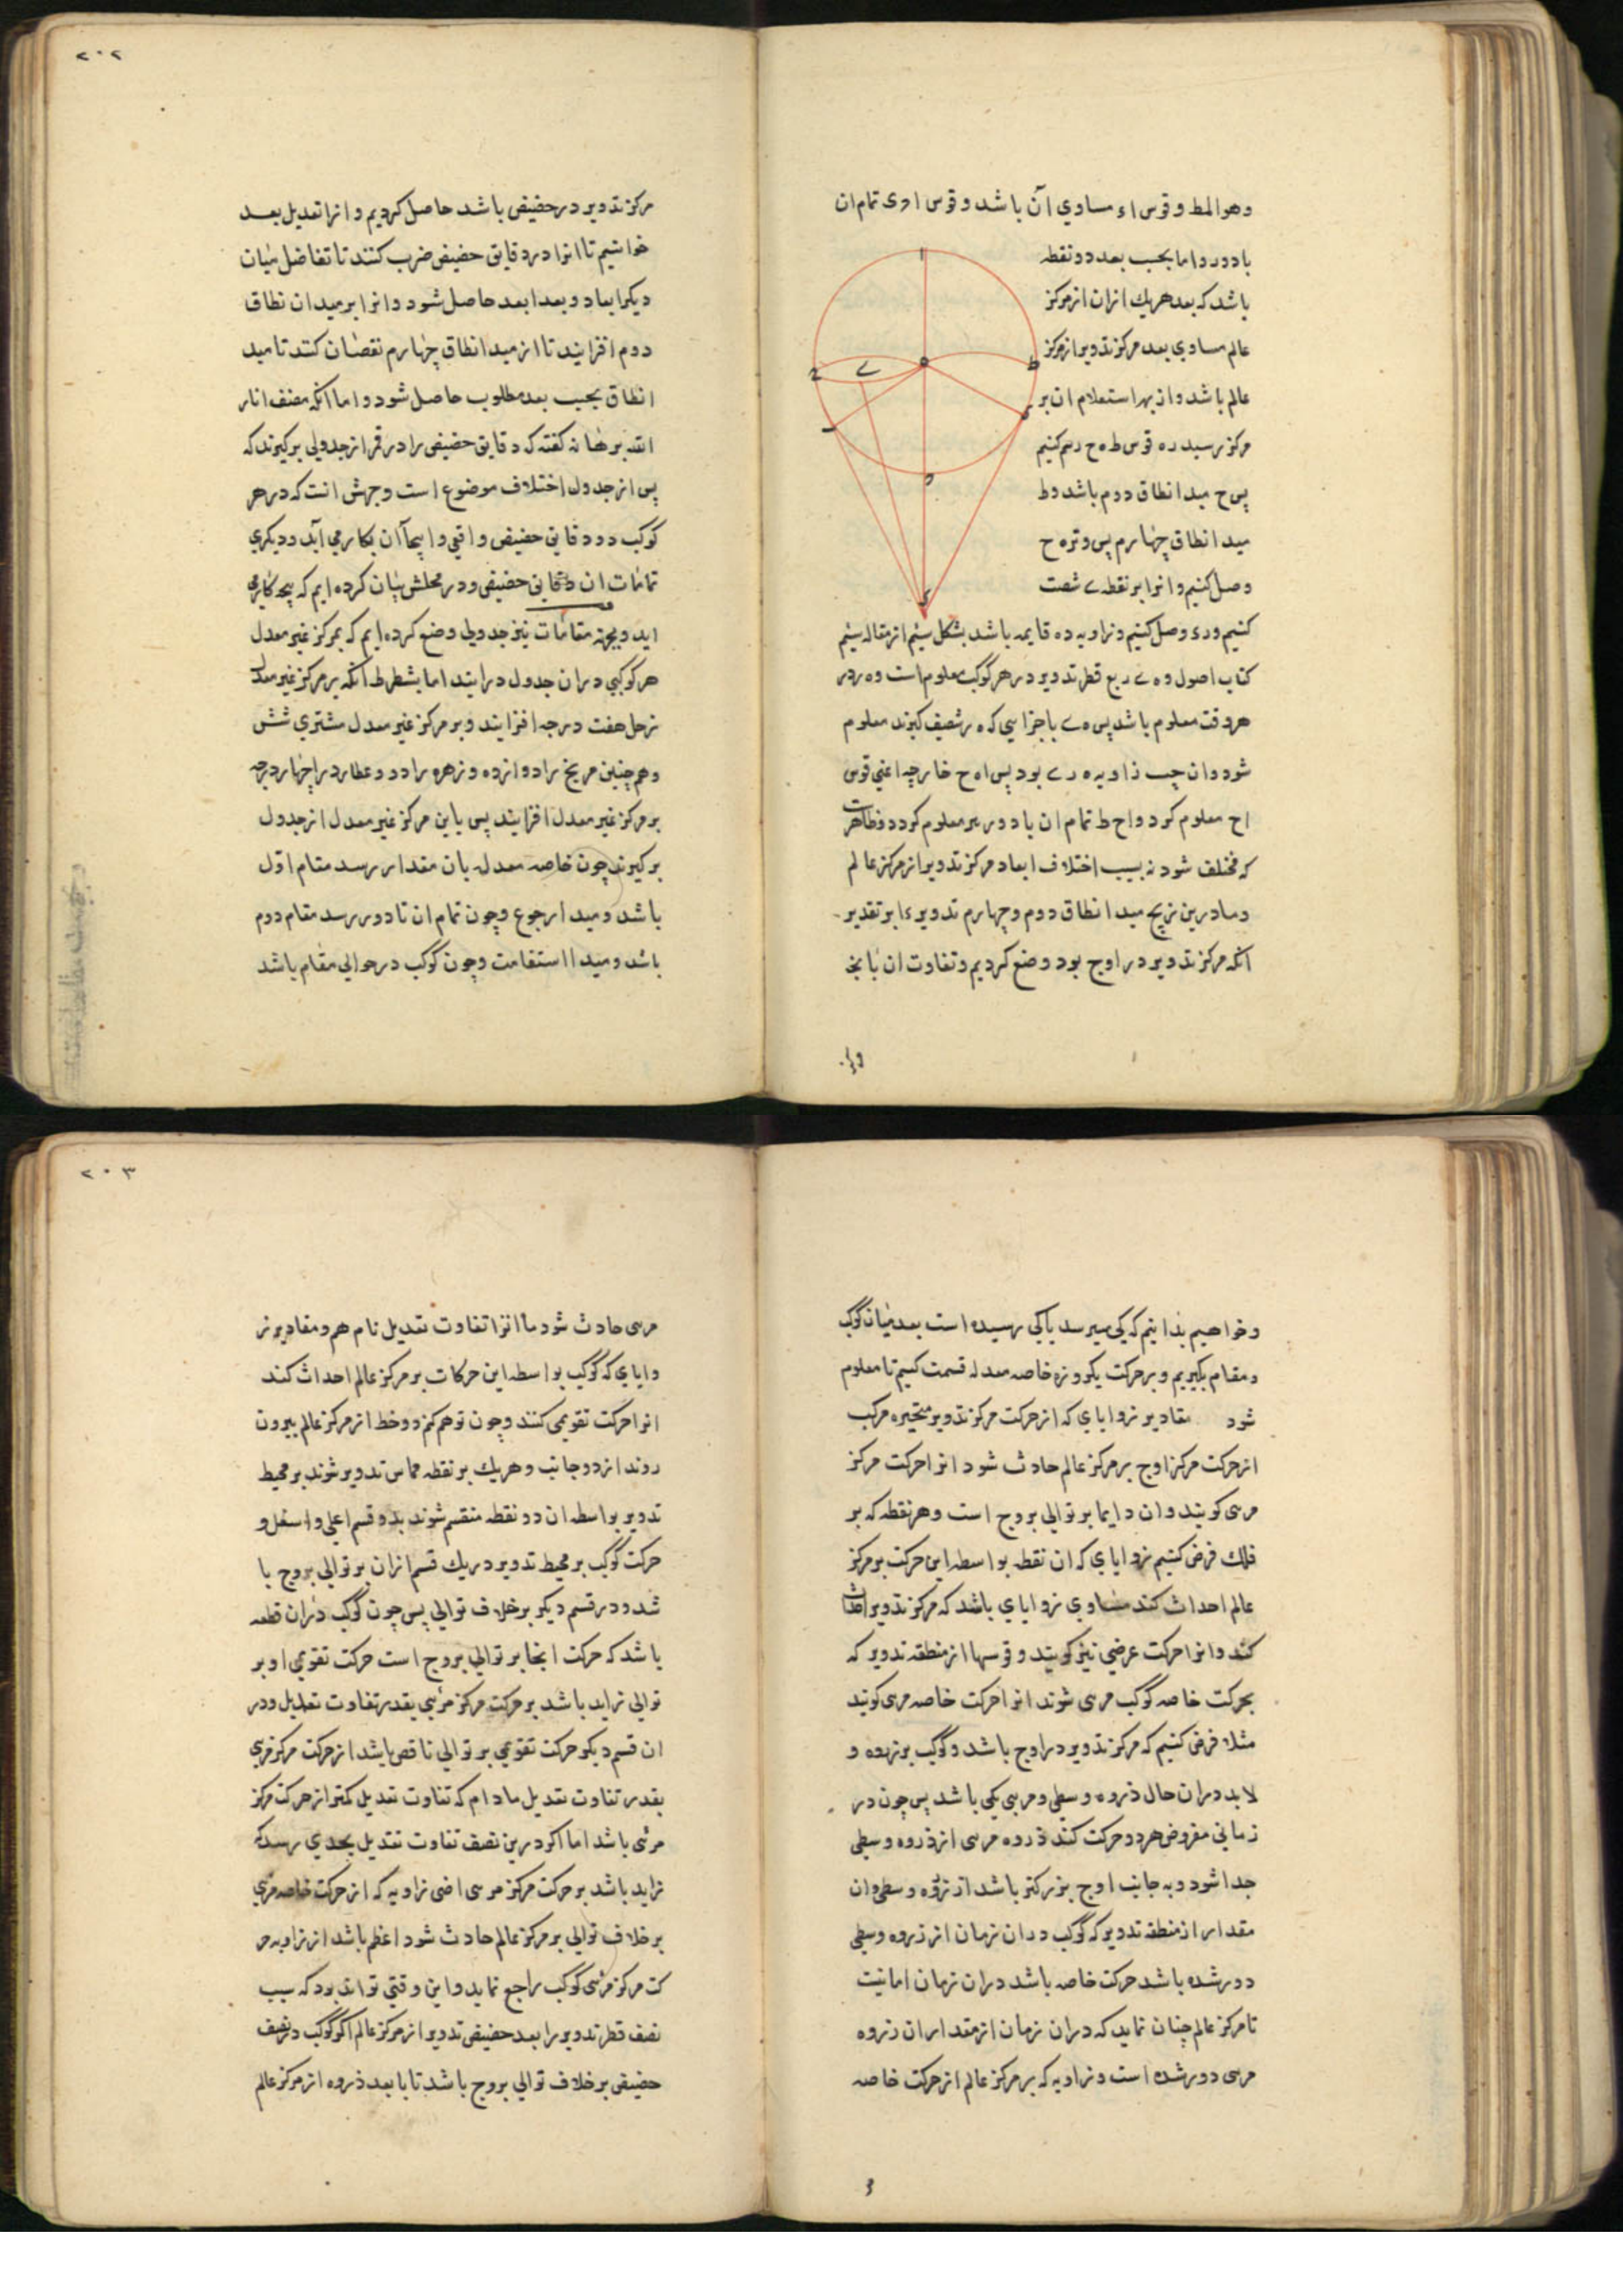 وهو المط وقوس اء مساوي آن باشد وقوس ا ری تمام ان
با دور واما بحسب بعد دو نقطه
باشد که بعد هریك ازان از مرکز
عالم مساوي بعد مرکز تدویر از مرکز
عالم باشد واز بهر استعلام ان بر
مرکز ر ببعد ره قوس ط ه ح رسم کنیم
پس ح مبدا نطاق دوم باشد و ط
مبدا نطاق چهارم پس وتر ه ح
وصل کنیم وانرا بر نقطه ے
کنیم و ر ے وصل کنیم وزاویه ده قایمه باشد بشکل سیم از مقاله سیم
کتاب اصول و ه ے ربع قطر تدویر در هر کوکب معلوم است و ه ر در
هر وقت معلوم باشد پس ه ے باجزایي که ه ر شصت کیرند معلوم
شود وان جیب زاویه ه ر ے بود پس ا ه ح خارجه اعني قوس
اح معلوم کردد و اح ط تمام ان با دور نیز معلوم کردد وظاهر
که مختلف شود بسبب اختلاف ابعاد مرکز تدویر از مرکز عالم
وما درین زیج مبدا نطاق دوم وچهارم تدویر را بر تقدیر
آنکه مرکز تدویر در اوج بود وضع کردیم وتفاوت ان بانچ
وانرا
۲۰۲
مرکز تدویر در حضیض باشد حاصل کردیم وانرا تعدیل بعد
خواندیم تا انرا در دقایق حضیض ضرب کنند تا تفاضل میان
دیکر ابعاد وبعد ابعد حاصل شود وانرا بر مبدا ن نطاق
دوم افزایند تا از مبدا نطاق چهارم نقصان کنند تا مبد
ا نطاق بحسب بعد مطلوب حاصل شود واما آنکه مصنف انار
الله برهانه کفته که دقایق حضیض را در قمر از جدولي برکیرند که
پس از جدول اختلاف موضوع است وجهش انست که در هر
کوکب دو دقایق حضیض واقی واینجا آن بکار مي آید ودیکري
تمامات ان دقایق حضیض ودر محلش بیان کرده ایم که بچه کار می
اید وبجهة مقامات نیز جدولي وضع کرده ایم که بمرکز غیر معدل
هر کوکبي دران جدول درایند اما بشطر ط آنکه بر مرکز غیر معدل
زحل هفت درجه افزایند وبر مرکز غیر معدل مشتري شش
وهم چنین مریخ را دوازده وزهره را دو وعطارد را چهار درجه
بر مرکز غیر معدل افزایند پس باین مرکز غیر معدل از جدول
برکیرند چون خاصه معدله بان مقدار رسد مقام اوّل
باشد ومبدا رجوع وچون تمام ان تا دور رسد مقام دوم
باشد ومبدا استقامت وچون کوکب در حوالي مقام باشد
وخواهیم بدانیم که کي میرسد یا کي رسیده است بعد میان کوکب
ومقام بکیریم وبر حرکت یکروزه خاصه معدله قسمت کنیم تا معلوم
شود مقادیر زوایاي که از حرکت مرکز تدویر متحیره مرکب
از حرکت مرکز اوج بر مرکز عالم حادث شود انرا حرکت مرکز
مرئی کویند وان دایما بر توالي بروج است وهر نقطه که بر
فلك فرض کنیم زوایاي که ان نقطه بواسطه این حرکت بر مرکز
عالم احداث کند مساوي زوایاي باشد که مرکز تدویر احداث
کند وانرا حرکت عرضي نیز کویند وقوسها از منطقه تدویر که
بحرکت خاصه کوکب مرئی شوند انرا حرکت خاصه مرئی کویند
مثلا فرض کنیم که مرکز تدویر در اوج باشد وکوکب بر ذروه و
لابد دران حال ذروه وسطي ومرئي یکي باشد پس چون در
زماني مفروض هر دو حرکت کنند ذروه مرئی از ذروه وسطي
جدا شود وبه جانب اوج بزرکتر باشد از ذروه وسطي وان
مقدار از منطقه تدویر که کوکب دران زمان از ذروه وسطي
دور شده باشد حرکت خاصه باشد دران زمان اما نسبت
تا مرکز عالم چنان نماید که دران زمان از مقدار ان ذروه
مرئی دور شده است وزاویه که بر مرکز عالم از حرکت خاصه
۲۰۳
مرئی حادث شود ما انرا تفاوت تعدیل نام هم ومقادیر ز
وایاي که کوکب بواسطه این حرکات بر مرکز عالم احداث کند
انرا حرکت تقویمي کنند وچون توهم کنم دو خط از مرکز عالم بیرون
روند از دو جانب وهریك بر نقطه مماس تدویر شوند بر محیط
تدویر بواسطه ان دو نقطه منقسم شوند بدو قسم اعلي واسفل و
حرکت کوکب بر محیط تدویر در یك قسم ازان بر توالي بروج با
شد ودر قسم دیکر بر خلاف توالي پس چون کوکب دران قطعه
باشد که حرکت انجا بر توالي بروج است حرکت تقویمي او بر
توالي زاید باشد بر حرکت مرکز مرئي بقدر تفاوت تعدیل ودر
ان قسم دیکر حرکت تقویمي بر توالي ناقص باشد از حرکت مرکز مرئي
بقدر تفاوت تعدیل مادام که تفاوت تعدیل کمتر از حرکت مرکز
مرئی باشد اما اکر درین نصف تفاوت تعدیل بحدي رسد که
زاید باشد بر حرکت مرکز مرئی اعنی زاویه که از حرکت خاصه مرئي
بر خلاف توالي بر مرکز عالم حادث شود اعظم باشد از زاویه حر
کت مرکز مرئی کوکب راجع نماید واین وقتي تواند بود که نسبت
نصف قطر تدویر را بعد حضیض تدویر از مرکز عالم اکر کوکب در نصف
حضیض بر خلاف توالي بروج باشد تا با بعد ذروه از مرکز عالم